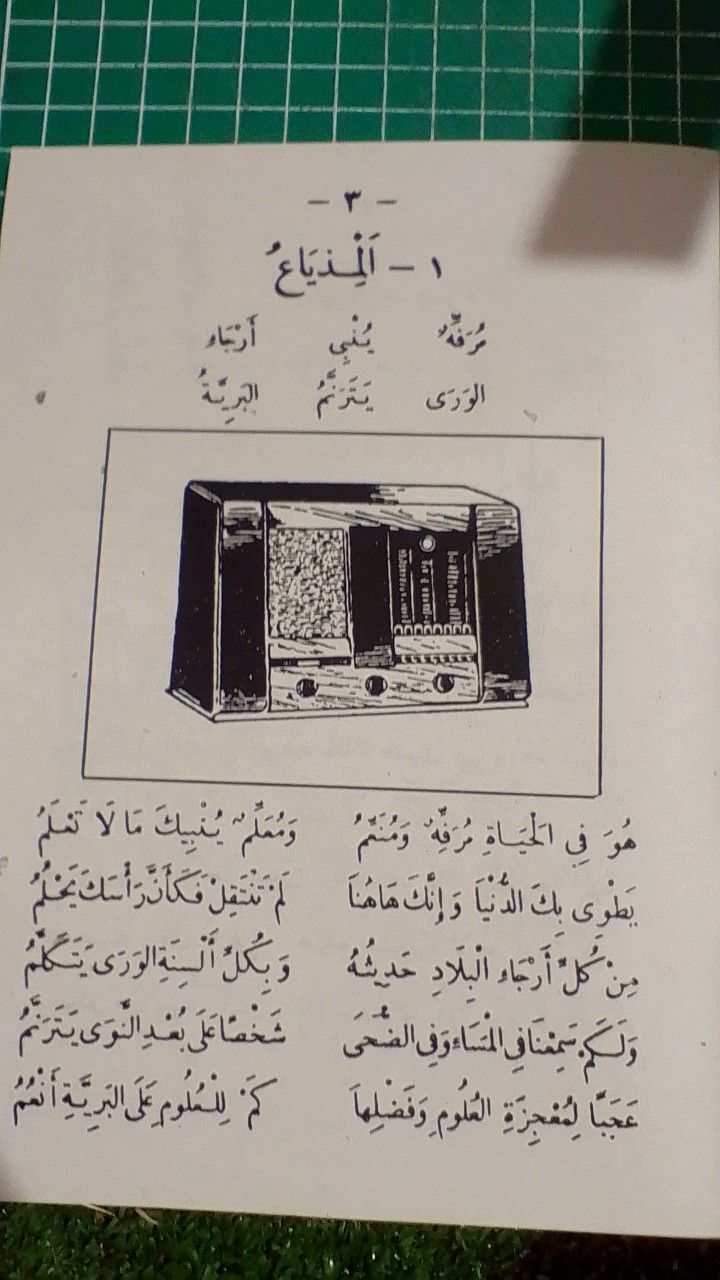 - ٣ -
١ - اَلْمِـذيَاعُ
مُرَفِّهٌ يُنْبِي أَرْجَاء
الوَرَى يَتَرَنَّمُ البَرِيَّةُ
هُوَ فِي الْحَيَاةِ مُرَفِّهٌ وَمُنَعِّمُ وَمُعَلِّمٌ يُنْبِيكَ مَا لَا تَعْلَمُ
يَطْوِى بِكَ الدُّنْيَا وَإِنَّكَ هَاهُنَا لَمْ تَنْتَقِلْ فَكَأَنَّ رَأْسَكَ يَحْلُمُ
مِنْ كُلِّ أَرْجَاءِ الْبِلَادِ حَدِيثُهُ وَبِكُلِّ أَلْسِنَةِ الوَرَى يَتَكَلَّمُ
وَلَكَمْ سَمِعْنَا فِي الْمَسَاءِ وَفِي الضُّحَى شَخْصًا عَلَى بُعْدِ النَّوَى يَتَرَنَّمُ
عَجَبًا لِمُعْجِزَةِ العُلُومِ وَفَضْلِهَا كَمْ لِلْعُلُومِ عَلَى البَرِيَّةِ أَنْعُمُ